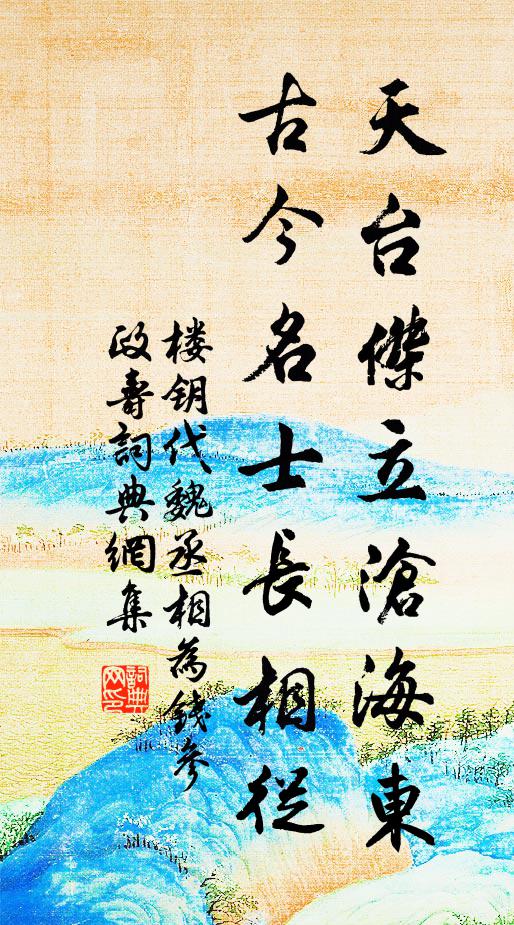 天台傑立滄海東
古今名士長相從
楼钥代魏丞相為錢參
政壽詞典網集
詞典网印